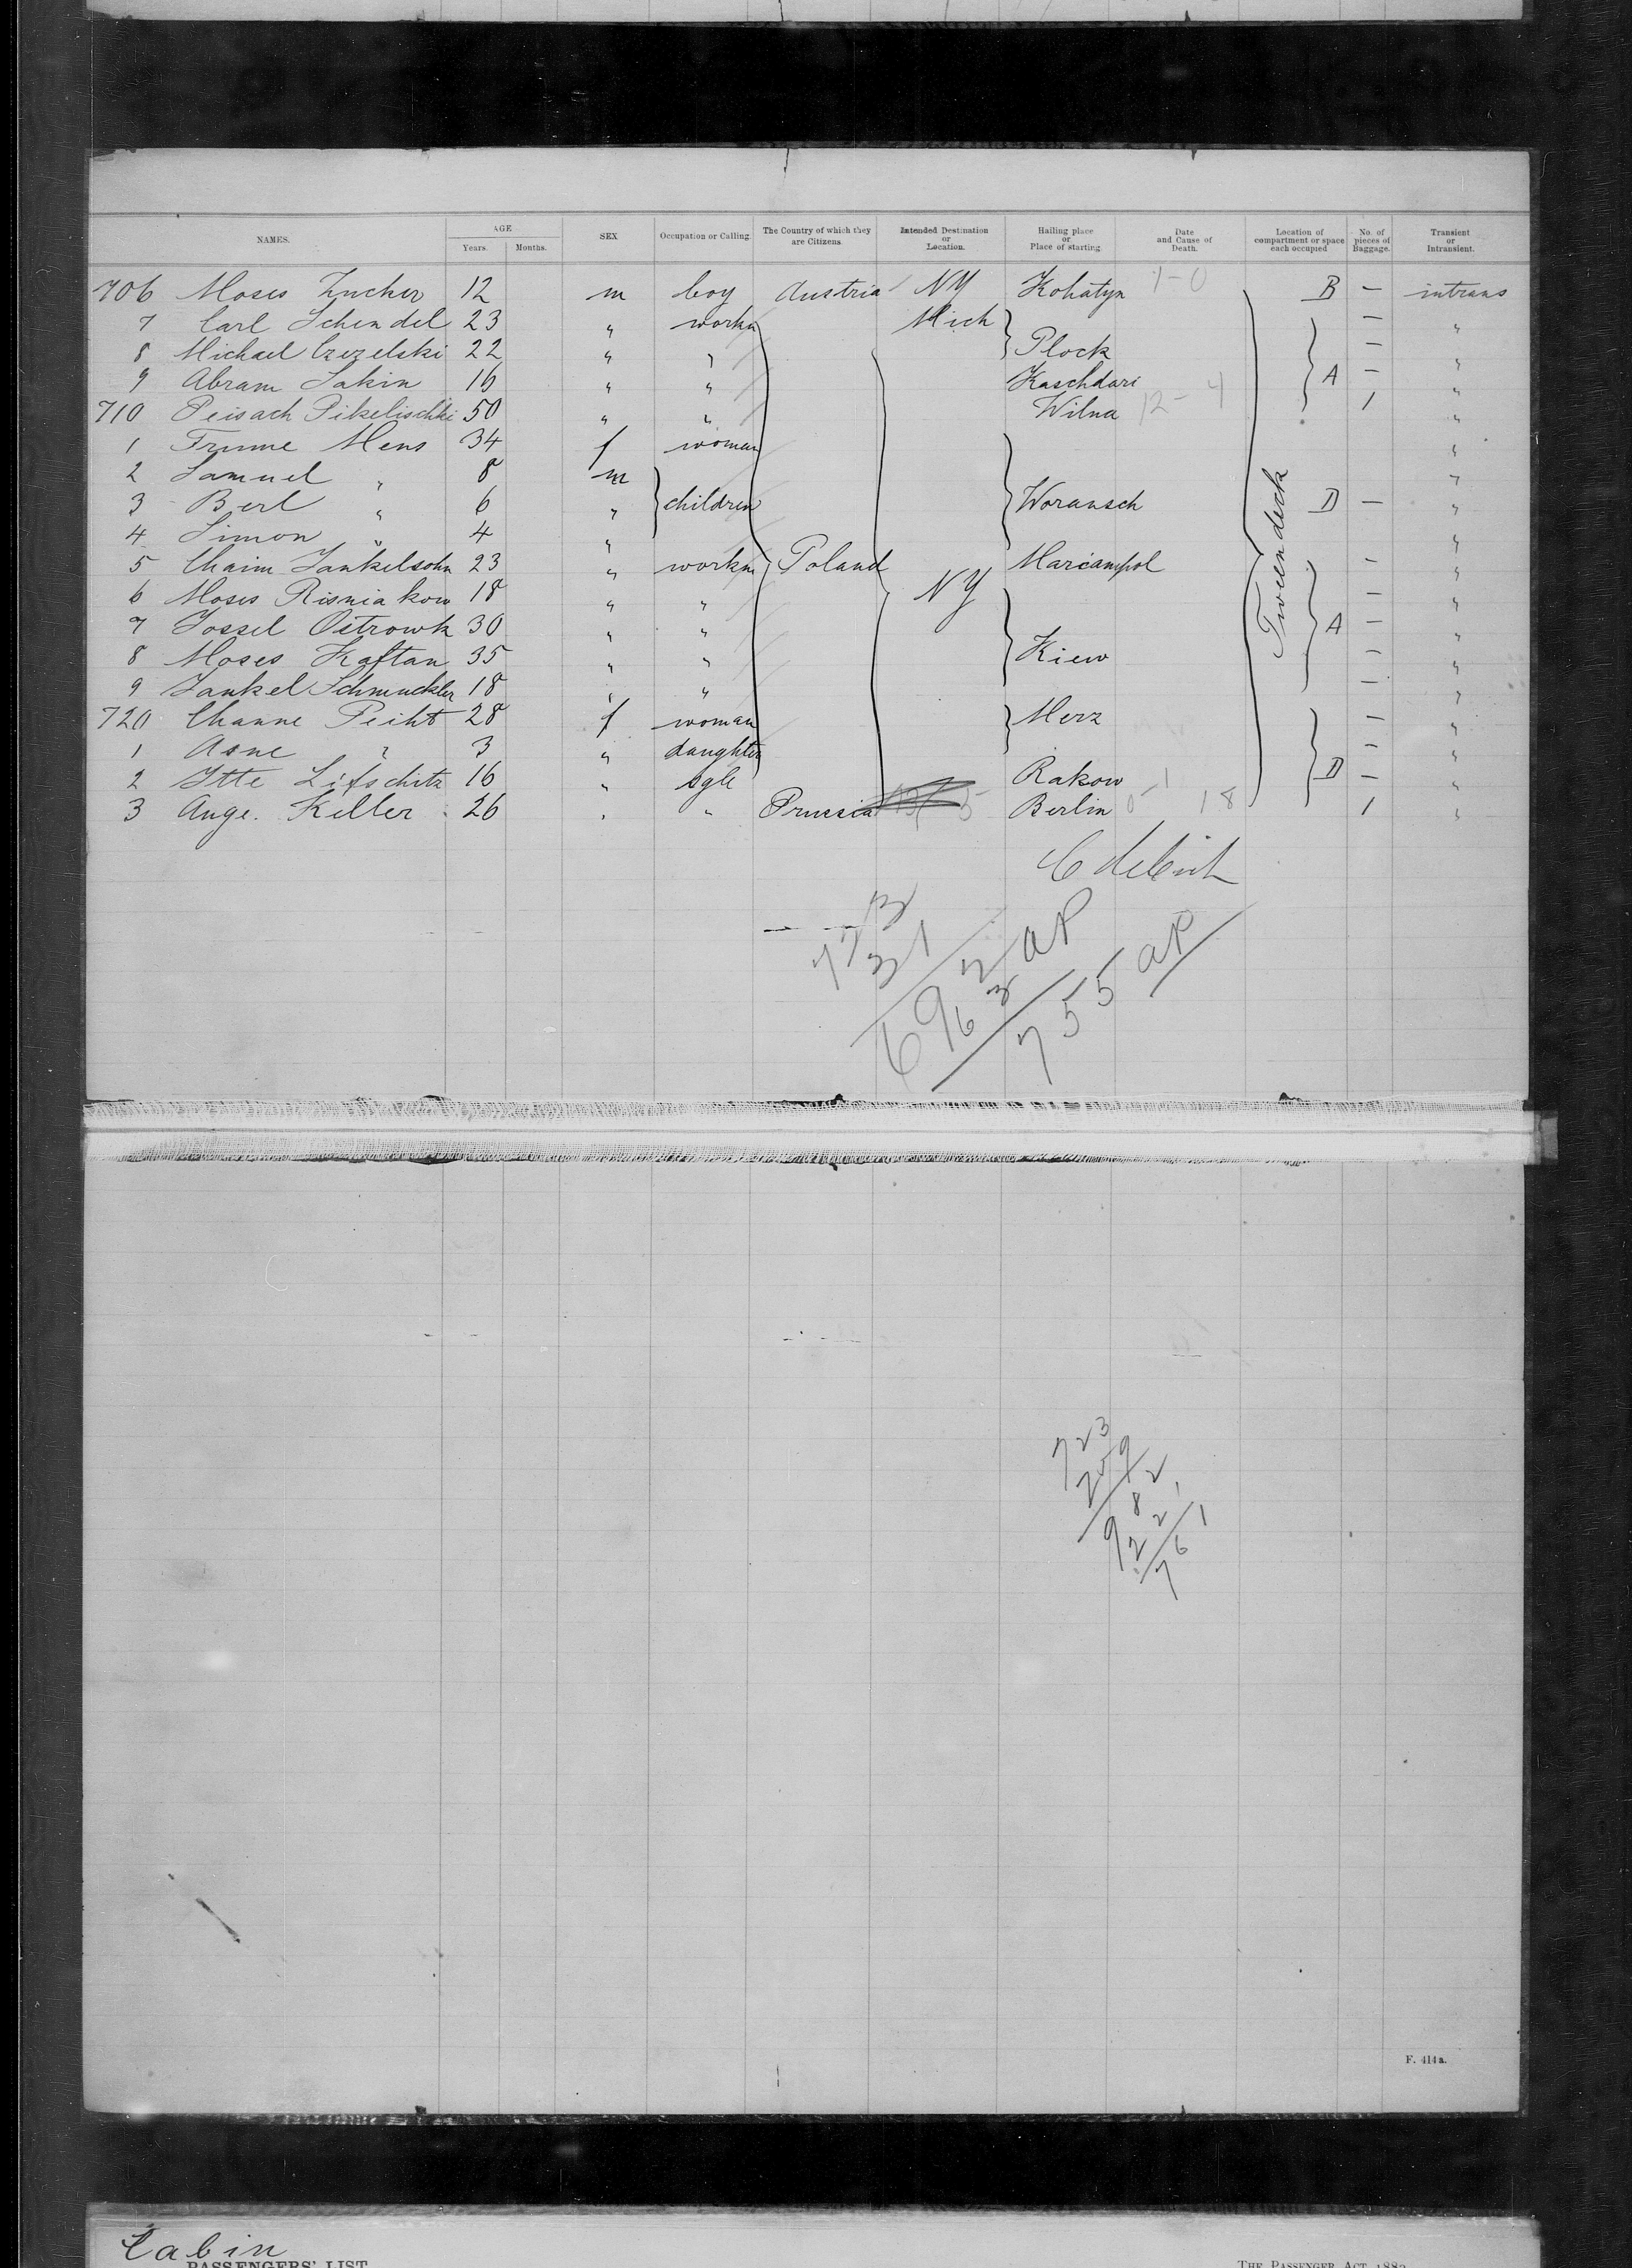 NAMES. AGE Years. Months. SEX Occupation or Calling. The Country of which they are Citizens. Intended Destination or Location. Hailing place or Place of starting. Date and Cause of Death. Location of compartment or space each occupied No. of pieces of Baggage. Transient or Intransient.
706 Moses Zucker 12 m boy Austria NY Kohatyn 1-0 B — intrans
7 Carl Schendel 23 " workn Mich — "
8 Michael Czezelski 22 " " Plock — "
9 Abram Sakin 16 " " Kaschdari A — "
710 Peisach Pikelischki 50 " " Wilna 12-4 1 "
1 Frume Mens 34 f woman "
2 Samuel " 8 m "
3 Berl " 6 " children Woransch D — "
4 Simon " 4 " "
5 Chaim Jankelsohn 23 " workn Poland Mariampol — "
6 Moses Risniakow 18 " " NY — "
7 Jossel Ostrowk 30 " " A — "
8 Moses Kaftan 35 " " Kiew — "
9 Jankel Schmuckler 18 " " — "
720 Channe Picht 28 f woman Merz — "
1 Asne " 3 " daughter — "
2 Itte Lifschitz 16 " sgle Rakow D — "
3 Auge. Keller 26 " " Prussia Berlin 18 1 "
Tweendeck
723
31
692 AP
63
755 AP
723
259
982
221
761
F. 414a.
Cabin
PASSENGERS' LIST THE PASSENGER ACT 1882